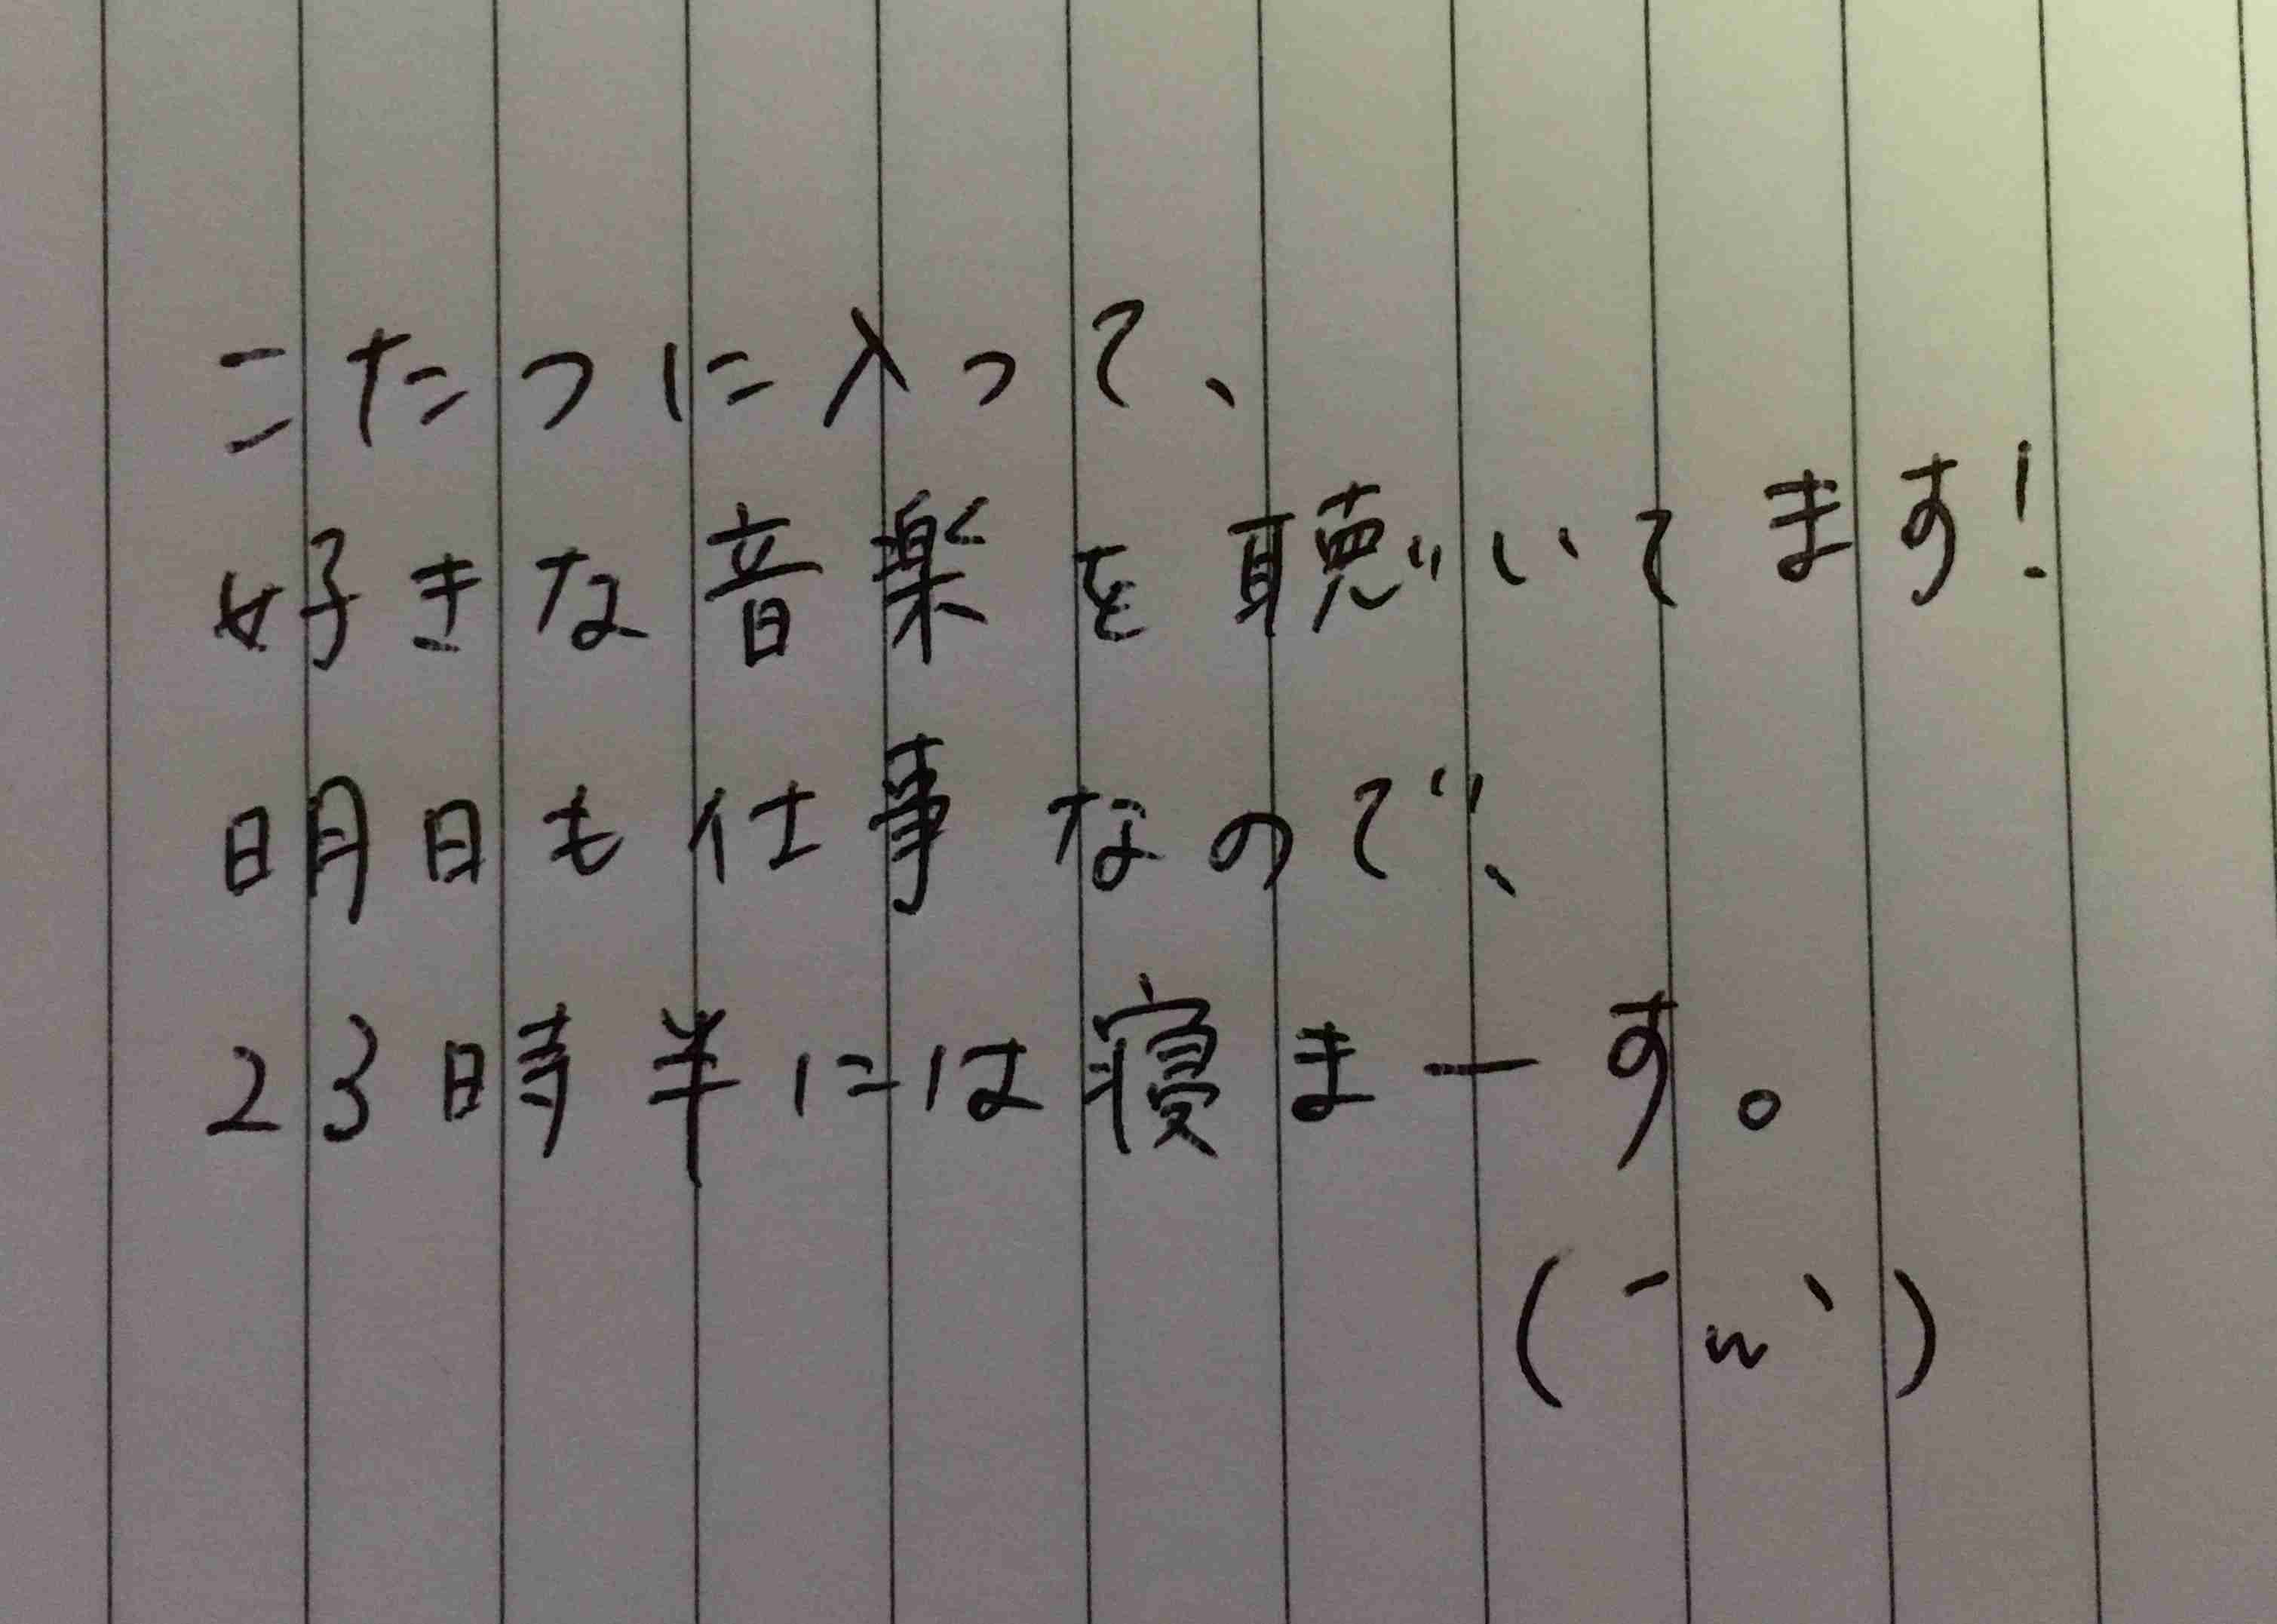 こたつに入って、
好きな音楽を聴いてます!
明日も仕事なので、
23時半には寝まーす。
(´ω｀)